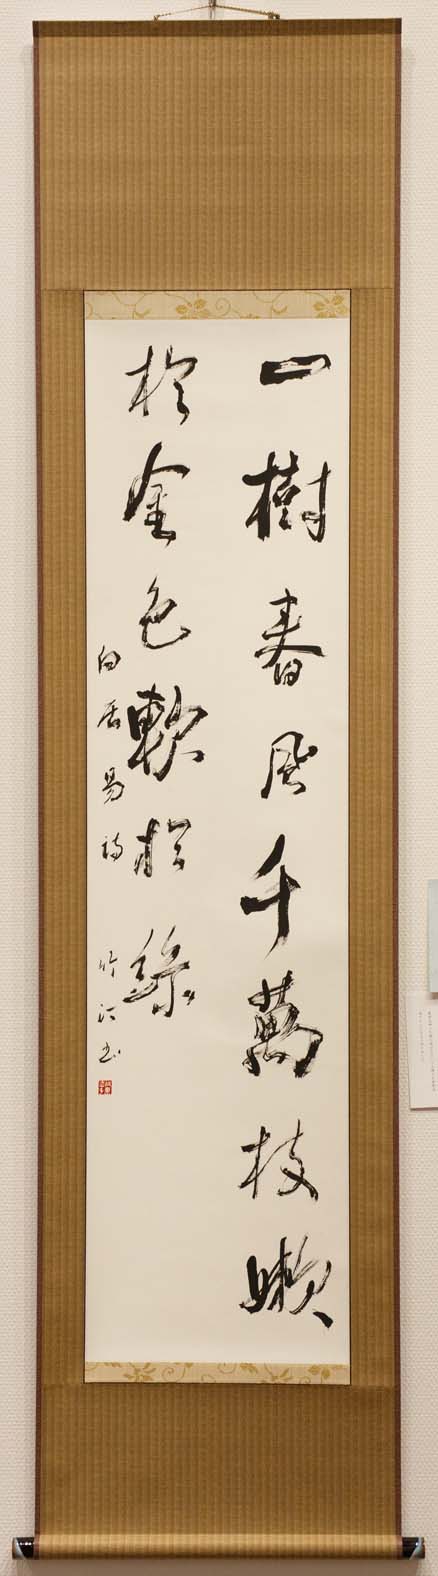 一樹春風千萬枝嫩
於金色軟於絲
白居易詩 竹江書